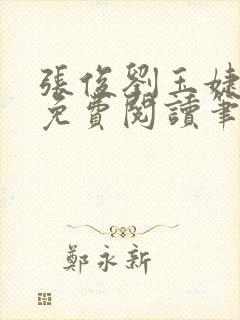 張俊劉玉婕
免費閱讀筆
鄭永新